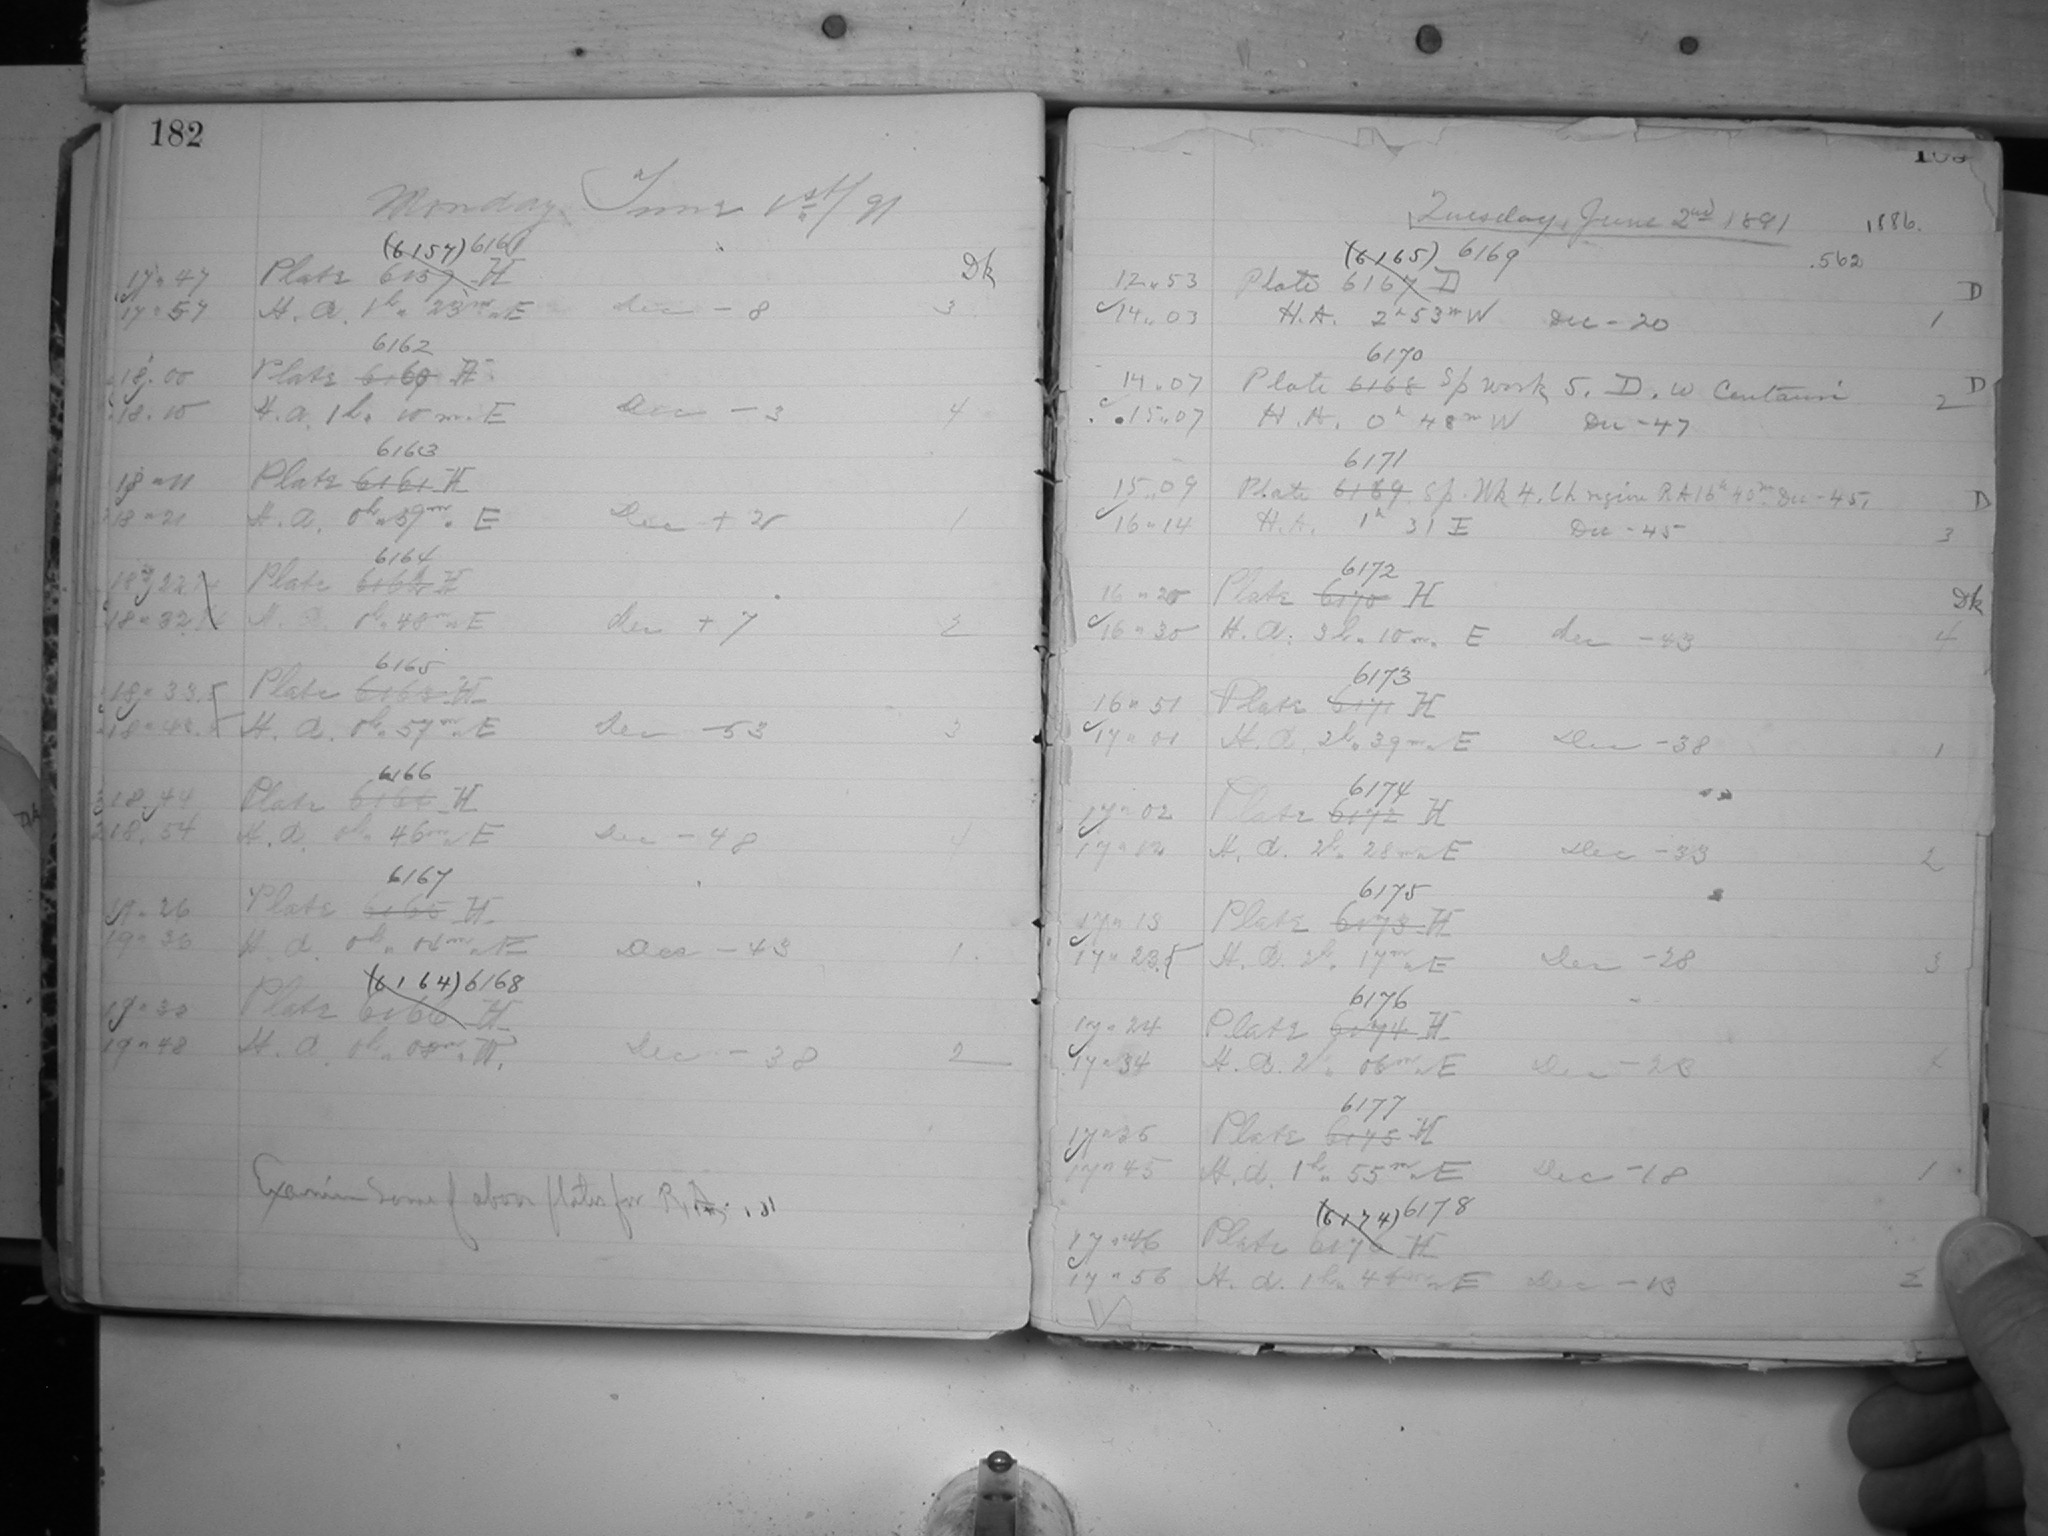 182
Monday June 1st/91
(6157) 6161
17.47 Plate 6159 H Dk
17.57 H.A. 1h. 23m. E Dec - 8 3
6162
18.00 Plate 6160 H
18.10 H.A. 1h. 10m. E Dec - 3 4
6163
18.11 Plate 6161 H
18.21 H.A. 0h. 59m. E Dec + 2 1
6164
18.22 Plate 6162 H
18.32 H.A. 0h. 48m. E Dec + 7 2
6165
18.33.5 Plate 6163 H
18.43.5 H.A. 0h. 57m. E Dec - 53 3
6166
18.44 Plate 6164 H
18.54 H.A. 0h. 46m. E Dec - 48 4
6167
19.26 Plate 6165 H
19.36 H.A. 0h. 04m. E Dec - 43 1
(6164) 6168
19.38 Plate 6166 H
19.48 H.A. 0h. 08m. W. Dec - 38 2
Examine some of above plates for R.A.
Tuesday, June 2nd 1891 1886.
(6165) 6169 .562
12.53 Plate 6167 D D
14.03 H.A. 2h 53m W Dec - 20 1
6170
14.07 Plate 6168 Sp work 5. D. w Centauri D
15.07 H.A. 0h 48m W Dec - 47 2
6171
15.09 Plate 6169 Sp. Wk 4. Ch region RA 16h 40m Dec - 45. D
16.14 H.A. 1h 31 E Dec - 45 3
6172
16.20 Plate 6170 H Dk
16.30 H.A. 3h. 10m. E Dec - 43 4
6173
16.51 Plate 6171 H
17.01 H.A. 2h. 39m. E Dec - 38 1
6174
17.02 Plate 6172 H
17.12 H.A. 2h. 28m. E Dec - 33 2
6175
17.13 Plate 6173 H
17.23.5 H.A. 2h. 17m. E Dec - 28 3
6176
17.24 Plate 6174 H
17.34 H.A. 2h. 06m. E Dec - 23 4
6177
17.35 Plate 6175 H
17.45 H.A. 1h. 55m. E Dec - 18 1
(6174) 6178
17.46 Plate 6176 H
17.56 H.A. 1h. 44m. E Dec - 13 2